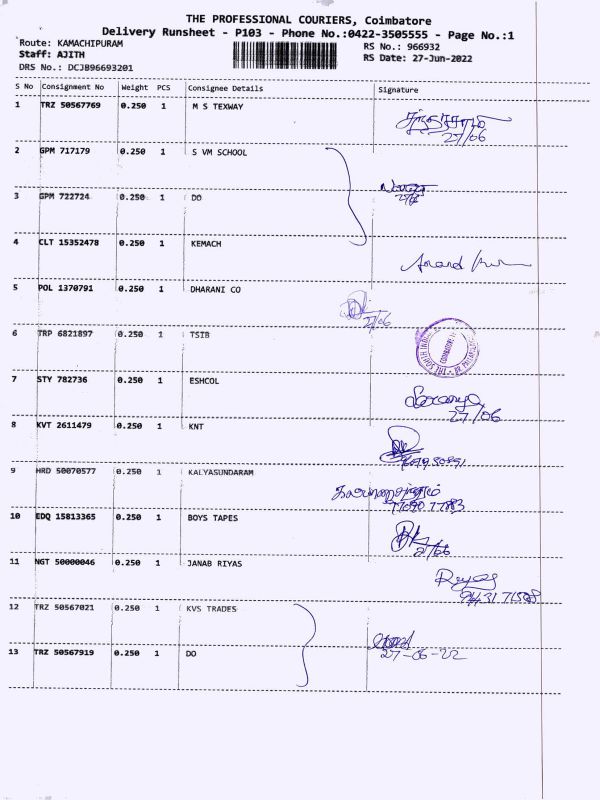 THE PROFESSIONAL COURIERS, Coimbatore
Delivery Runsheet - P103 - Phone No.:0422-3505555 - Page No.:1
Route: KAMACHIPURAM RS No.: 966932
Staff: AJITH RS Date: 27-Jun-2022
DRS No.: DCJB96693201
S No Consignment No Weight PCS Consignee Details Signature
1 TRZ 50567769 0.250 1 M S TEXWAY
27/06
2 GPM 717179 0.250 1 S VM SCHOOL
3 GPM 722724 0.250 1 DO
4 CLT 15352478 0.250 1 KEMACH
Anand
5 POL 1370791 0.250 1 DHARANI CO
27/06
6 TRP 6821897 0.250 1 TSIB
THE SOUTH INDI
7 STY 782736 0.250 1 ESHCOL
Saranya
27/06
8 KVT 2611479 0.250 1 KNT
9 HRD 50070577 0.250 1 KALYASUNDARAM
10 EDQ 15813365 0.250 1 BOYS TAPES
11 NGT 50000046 0.250 1 JANAB RIYAS
Riyas
12 TRZ 50567021 0.250 1 KVS TRADES
13 TRZ 50567919 0.250 1 DO
27-06-22